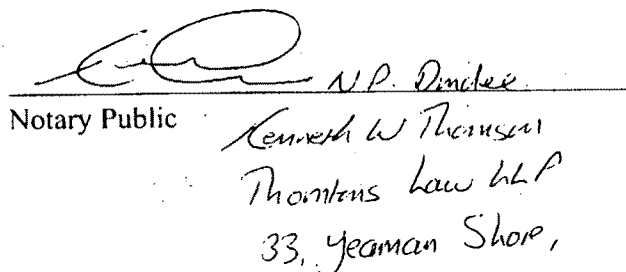 N.P. Dundee
Notary Public
Kenneth W Thomson
Thorntons Law LLP
33, Yeaman Shore,